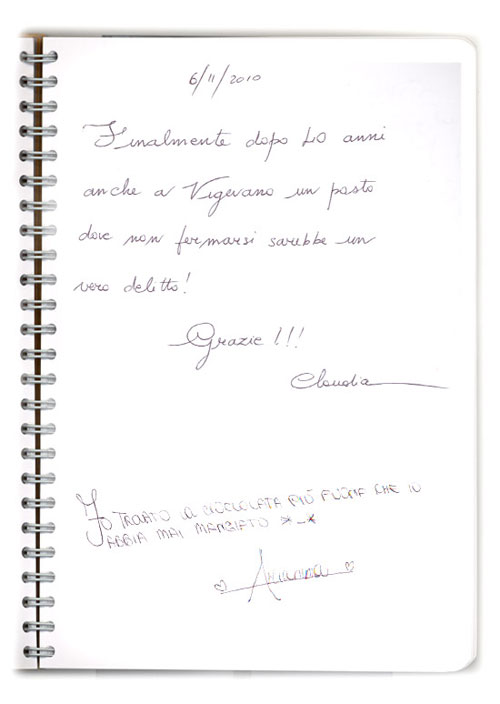 6/11/2010
Finalmente dopo 40 anni
anche a Vigevano un posto
dove non fermarsi sarebbe un
vero delitto!
Grazie!!!
Claudia
Ho TROVATO LA CIOCCOLATA PIÙ FUORI CHE IO
ABBIA MAI MANGIATO *_*